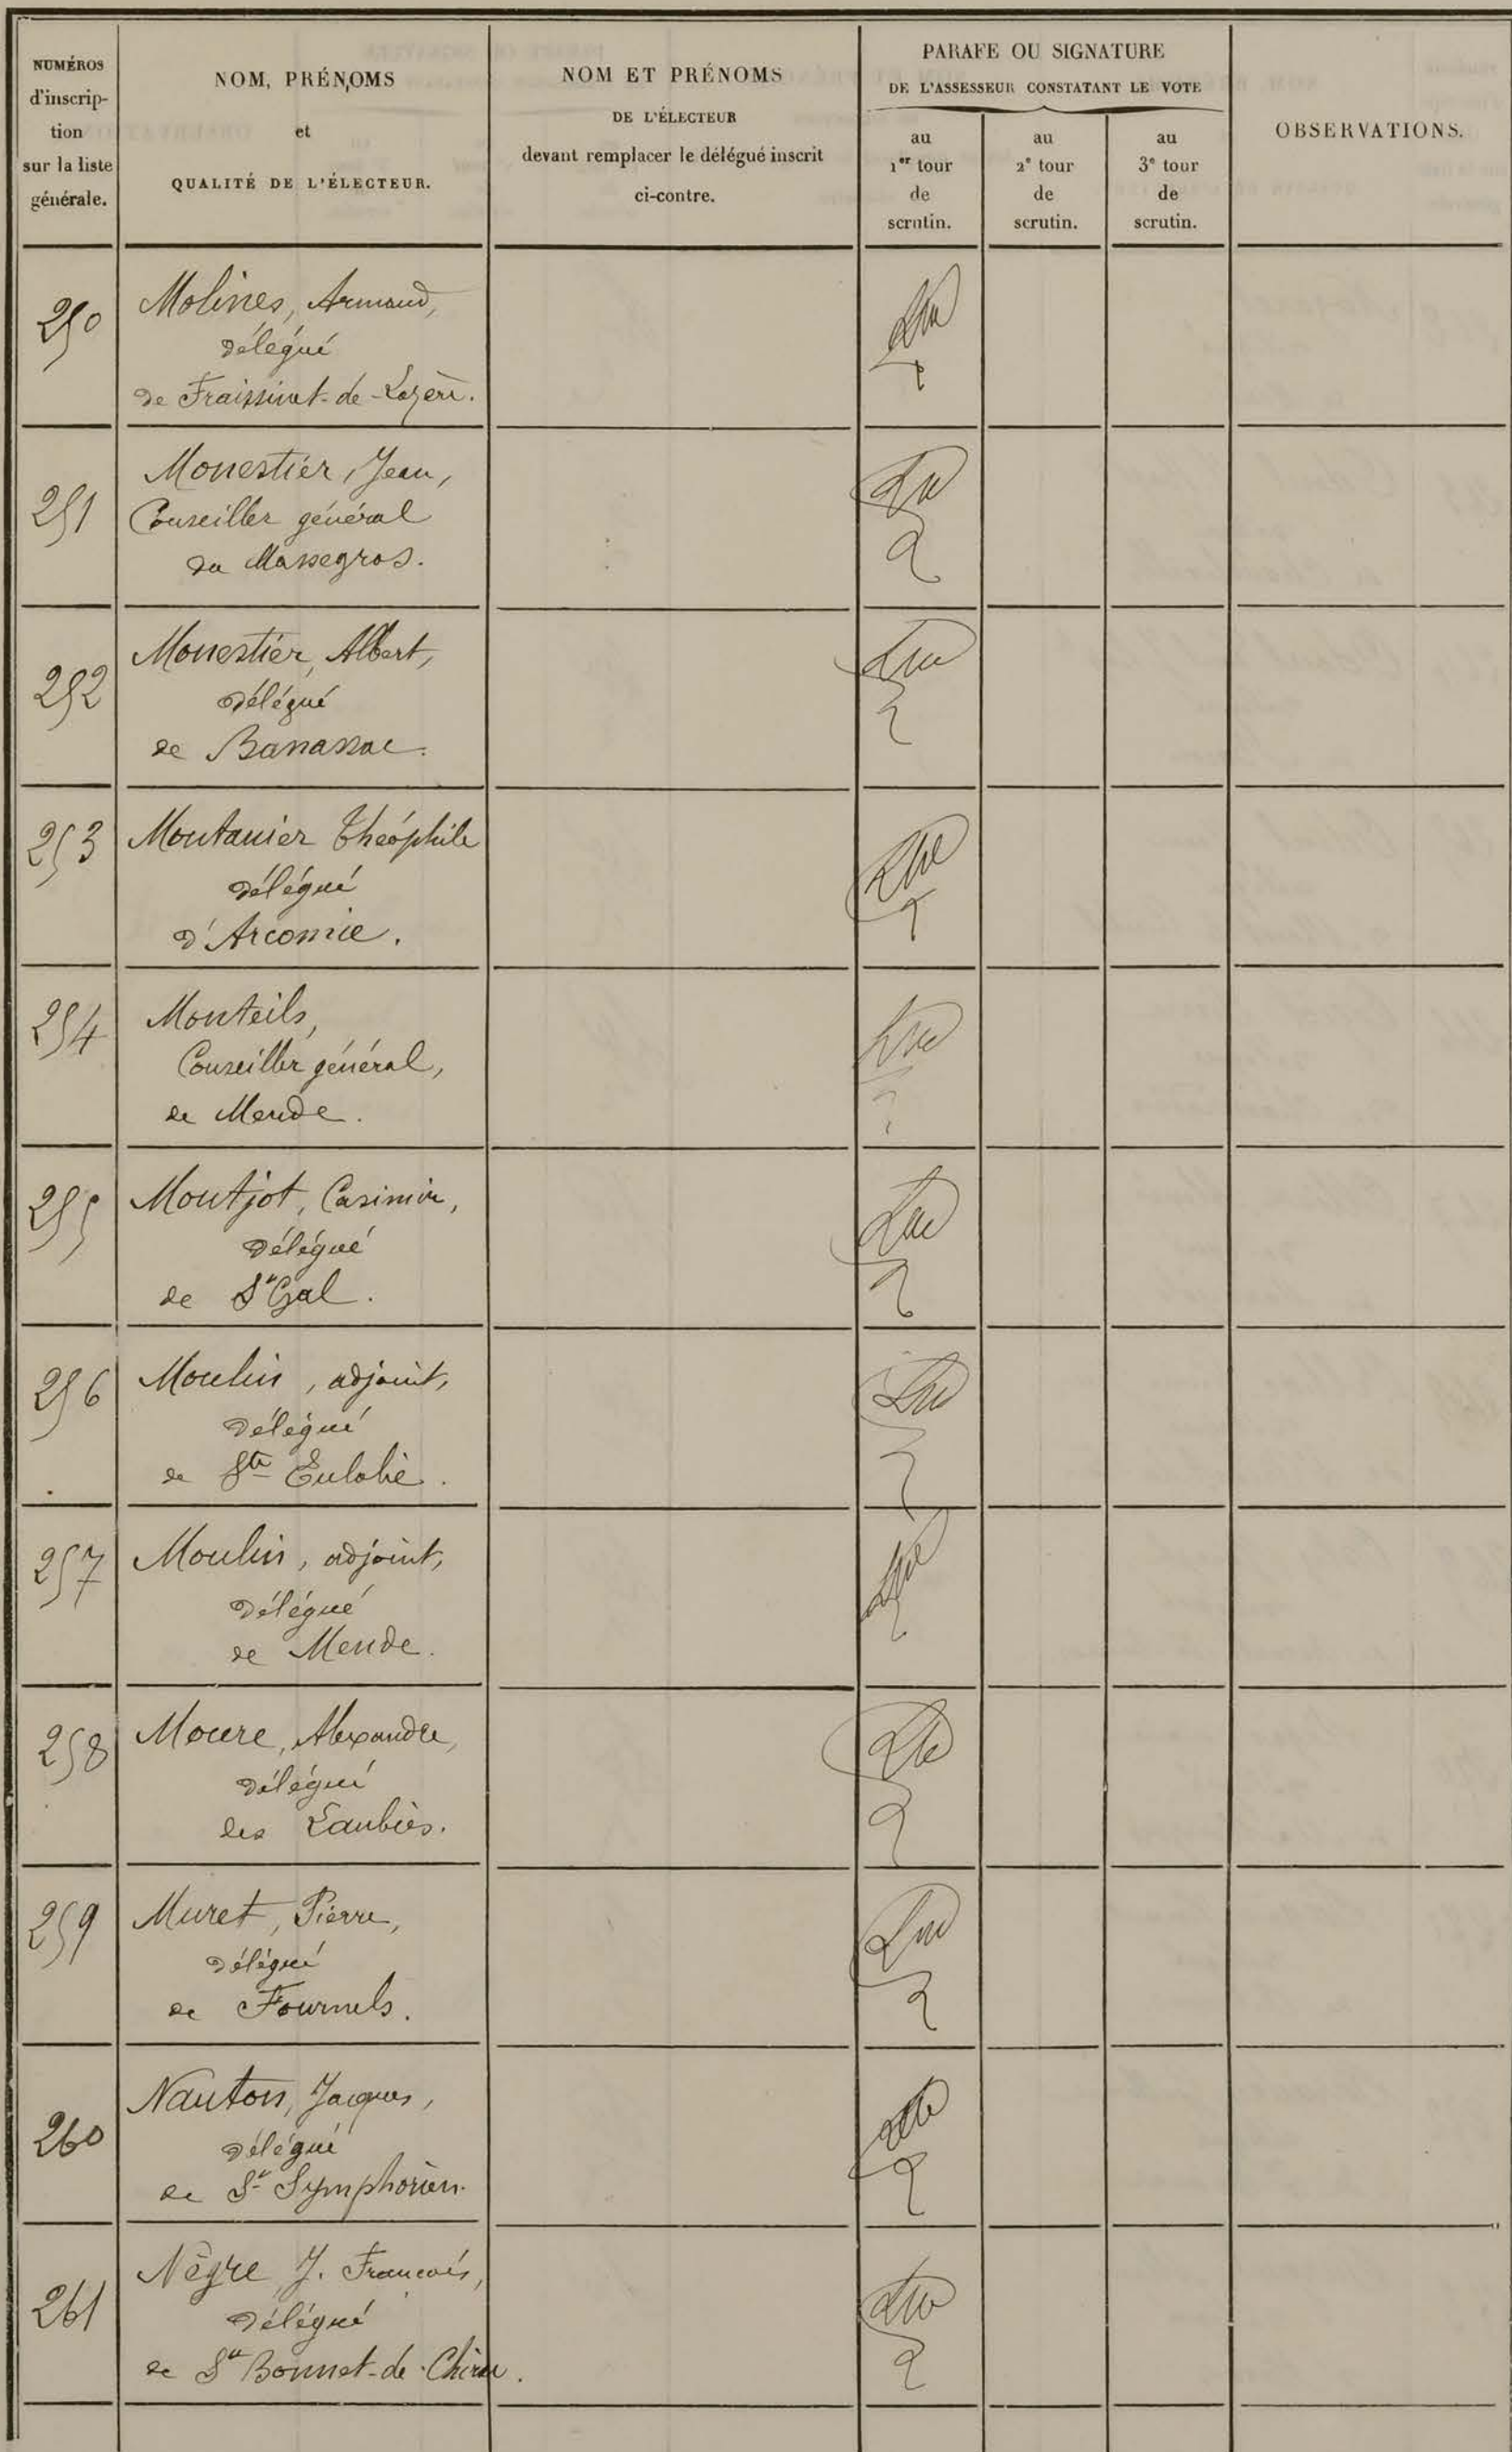 NUMÉROS
d'inscrip-
tion
sur la liste
générale.
NOM, PRÉNOMS
et
QUALITÉ DE L'ÉLECTEUR.
NOM ET PRÉNOMS
DE L'ÉLECTEUR
devant remplacer le délégué inscrit
ci-contre.
PARAFE OU SIGNATURE
DE L'ASSESSEUR CONSTATANT LE VOTE
au
1er tour
de
scrutin.
au
2e tour
de
scrutin.
au
3e tour
de
scrutin.
OBSERVATIONS.
250
Molines, Armand,
délégué
de Fraissinet-de-Lozère.
251
Monestier, Jean,
Conseiller général
du Massegros.
252
Monestier, Albert,
délégué
de Banassac.
253
Montanier Théophile
délégué
d'Arcomie.
254
Monteils,
Conseiller général,
de Mende.
255
Montjot, Casimir,
délégué
de St Gal.
256
Moulin, adjoint,
délégué
de Ste Eulalie.
257
Moulin, adjoint,
délégué
de Mende.
258
Moure, Alexandre,
délégué
des Laubies.
259
Muret, Pierre,
délégué
de Fournels.
260
Nauton, Jacques,
délégué
de St Symphorien.
261
Nègre J. François,
délégué
de St Bonnet-de-Chirac.